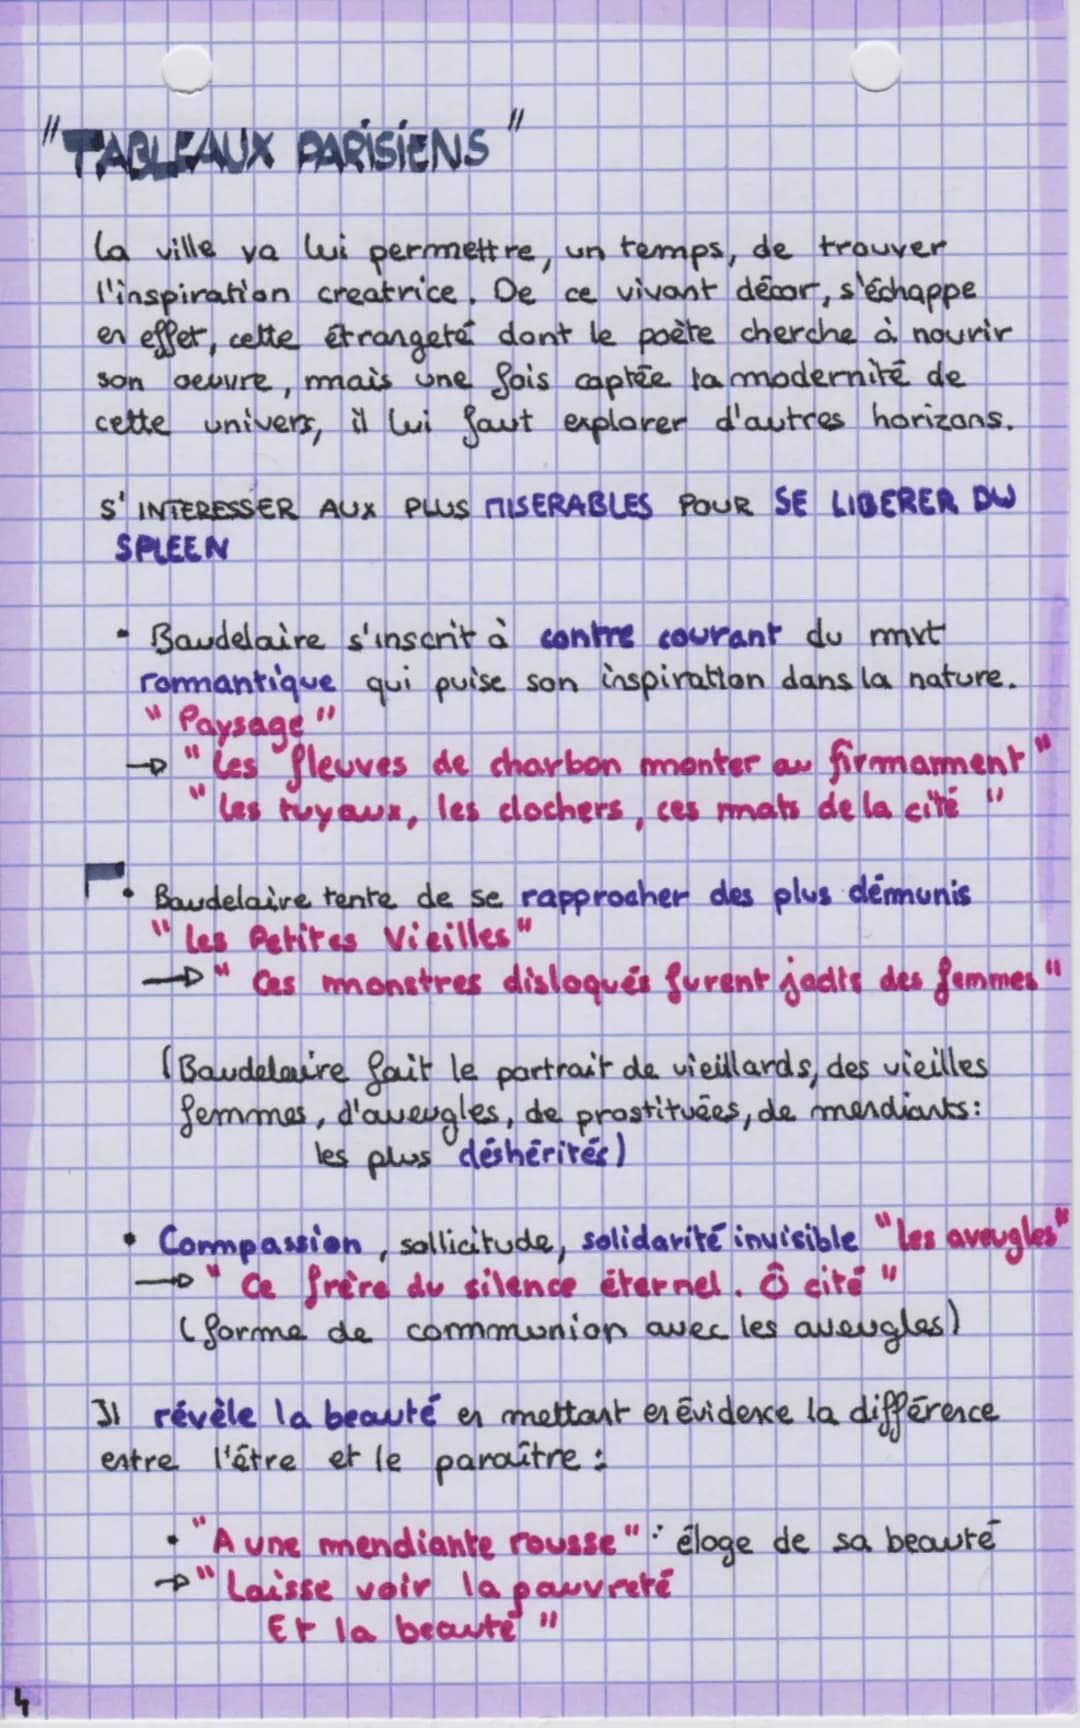 "TABLEAUX PARISIENS"
La ville va lui permettre, un temps, de trouver
l'inspiration creatrice. De ce vivant décor, s'échappe
en effet, cette étrangeté dont le poète cherche à nourir
son oeuvre, mais une fois captée la modernité de
cette univers, il lui faut explorer d'autres horizons.
S'INTERESSER AUX PLUS MISERABLES POUR SE LIBERER DU
SPLEEN
• Baudelaire s'inscrit à contre courant du mvt
romantique qui puise son inspiration dans la nature.
"Paysage"
→ "Les fleuves de charbon monter au firmament"
"Les tuyaux, les clochers, ces mats de la cité"
• Baudelaire tente de se rapprocher des plus démunis
"Les Petites Vieilles"
→ "Ces monstres disloqués furent jadis des femmes"
(Baudelaire fait le portrait de vieillards, des vieilles
femmes, d'aveugles, de prostituées, de mendiants:
les plus déshérités)
• Compassion, sollicitude, solidarité invisible "Les aveugles"
→ "Ce frère du silence éternel. Ô cité"
(forme de communion avec les aveugles)
Il révèle la beauté en mettant en évidence la différence
entre l'être et le paraître :
• "A une mendiante rousse" : éloge de sa beauté
→ "Laisse voir la pauvreté
Et la beauté"
4